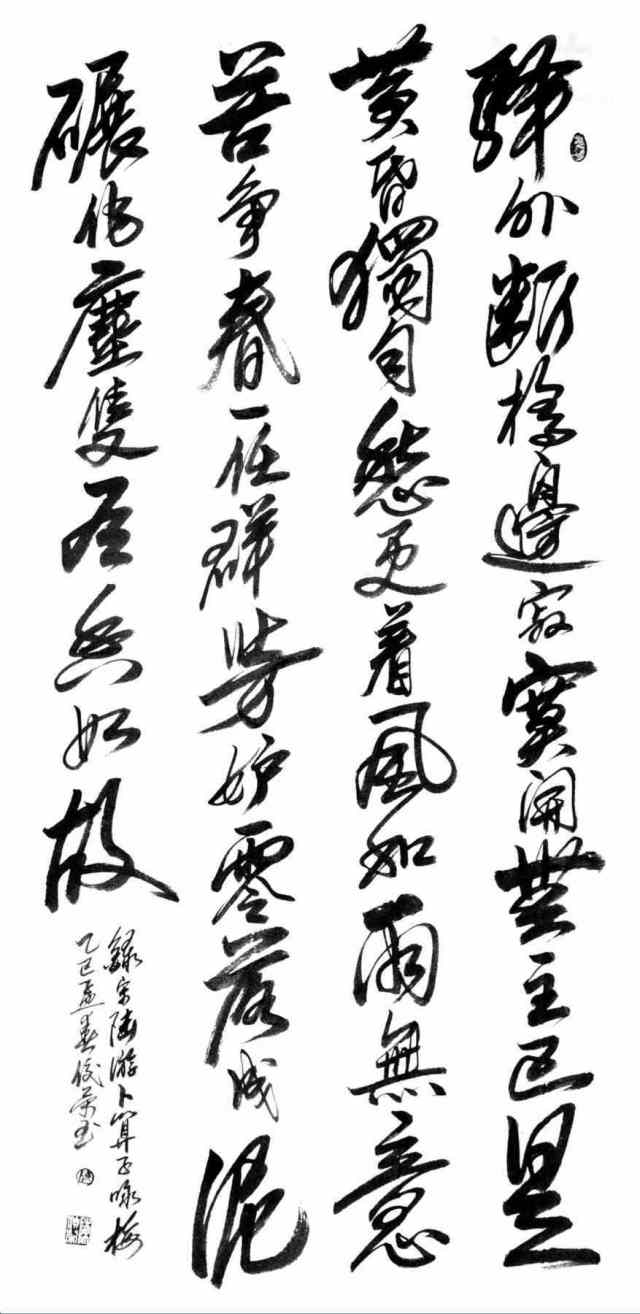 驛外斷橋邊寂寞開無主已是
黄昏獨自愁更着風如雨無意
苦争春一任群芳妒零落成泥
碾作塵隻有香如故
錄宋陸游卜算子咏梅
乙巳孟春俊荣书